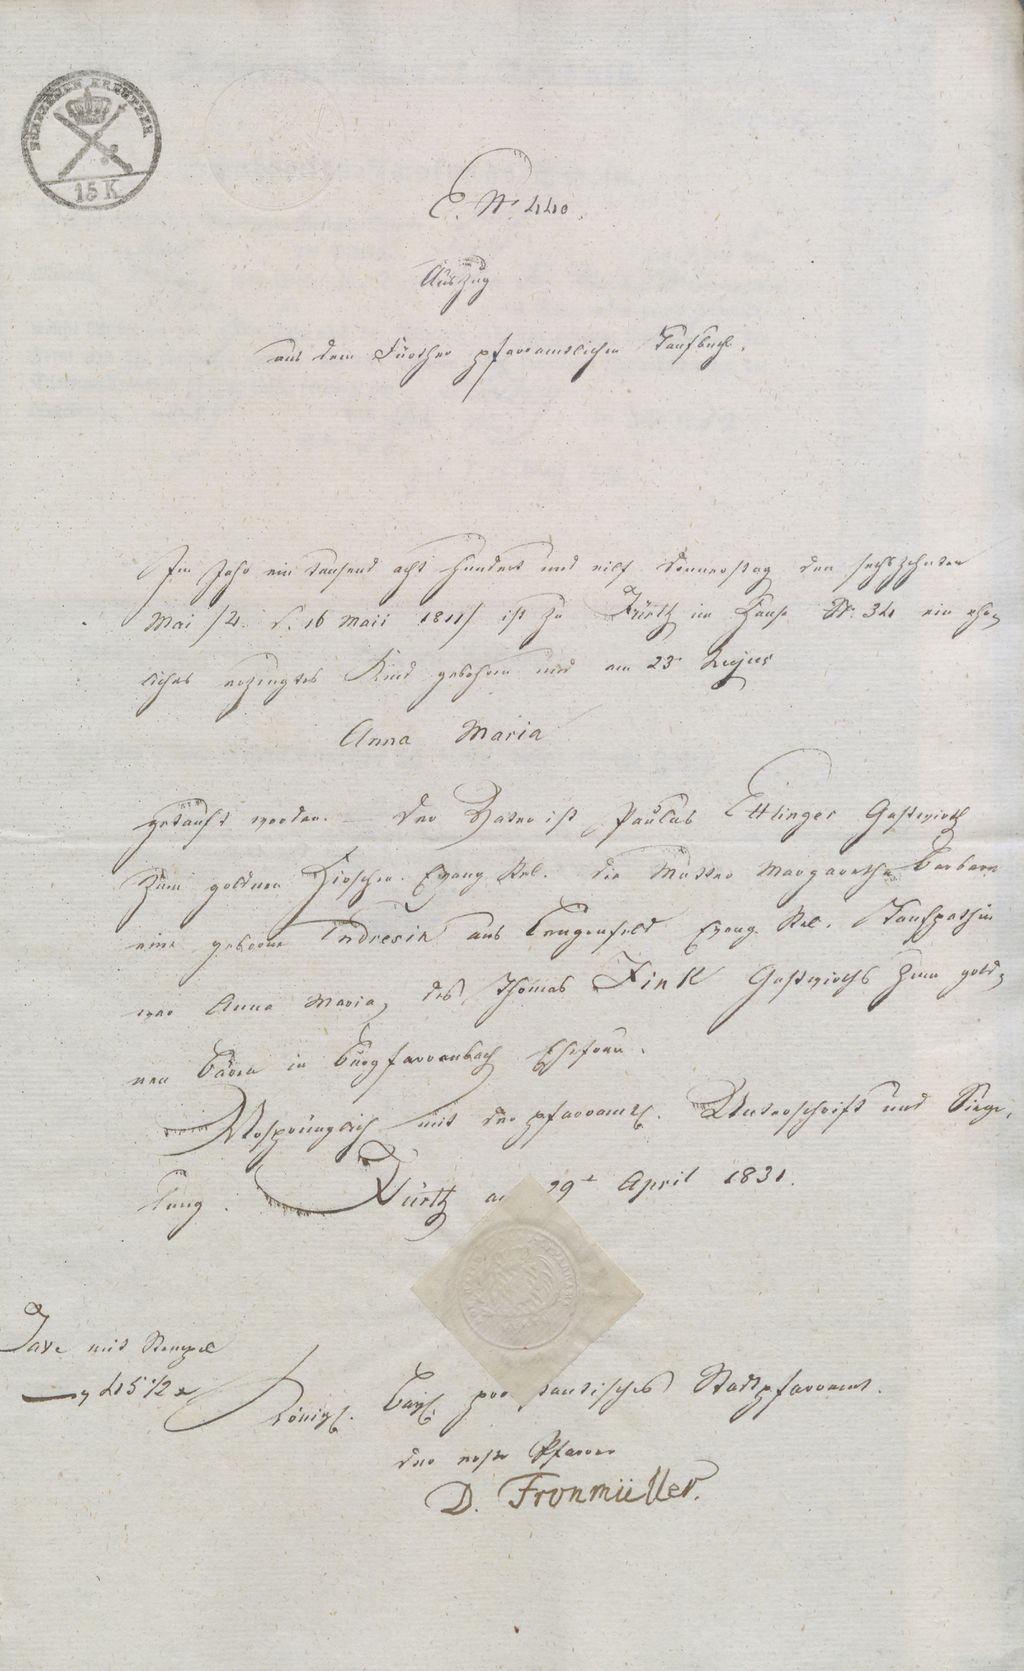 FÜNFZEHEN KREUTZER
15 K
E. No 440.
Auszug
aus dem Fürther pfarramtlichen Taufbuch.
Im Jahr ein tausend acht hundert und eilf Donnerstag den sechszehnten
Mai /: d. 16 Maii 1811/ ist zu Fürth im Hause Nr: 321 ein ehe-
liches erzeugtes Kind gebohren und am 23. hujus
Anna Maria
getauft worden. Der Vater ist Paulus Ettlinger Gastwirth
zum goldnen Hirschen. Evang. Rel. die Mutter Margaretha Barbara
eine geborne Endresin aus Langenfeld Evang. Rel. Taufpathin
war Anna Maria, des Thomas Fink Gastwirths zum gold-
nen Bären in Burgfarrnbach Ehefrau.
Urkundlich mit der pfarramtl. Unterschrift und Siege-
lung. Fürth 29t April 1831.
Taxe mit Stempel
45 1/2 x
Königl. Bayr. protestantisches Stadtpfarramt.
der erste Pfarrer
D. Fronmüller.